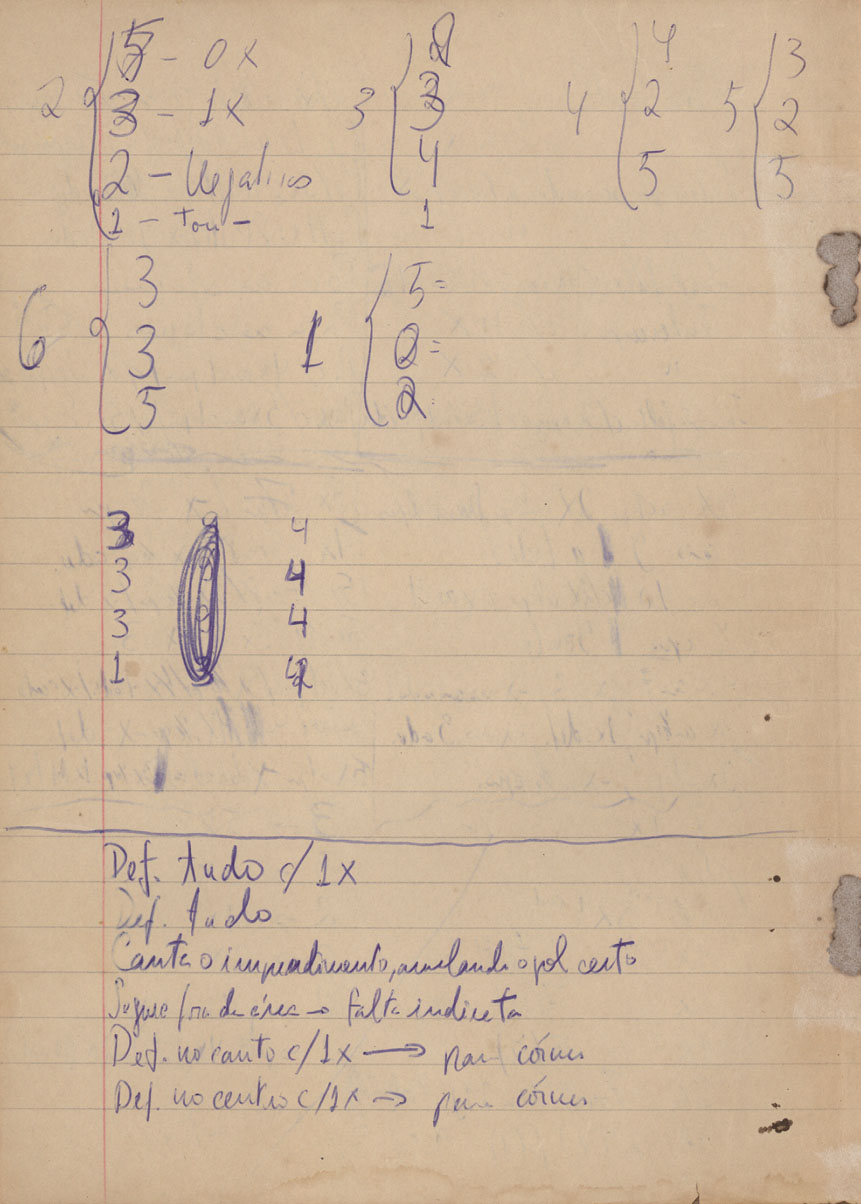 2 { 5 - 0x
3 - 1x
2 - Negativos
1 - tou -
3 { 3
4
1
4 { 4
2
5
5 { 3
2
5
6 { 3
3
5
1 { 5 =
2 =
2
3 4
3 4
3 4
1
Def. tudo c/ 1x
Def. tudo
Canta o impedimento, anulando o gol certo
fora da área → falta indireta
Def. no canto c/ 1x → para córner
Def. no centro c/ 1x → para córner